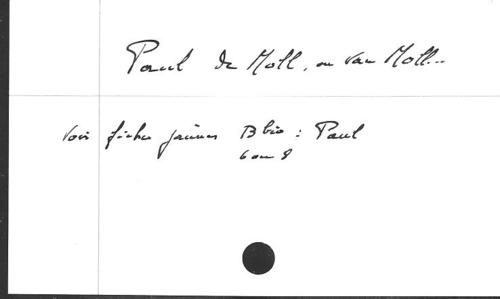 Paul de Moll, ou van Moll..
voir fiches jaunes Bbio : Paul
6 ou 8